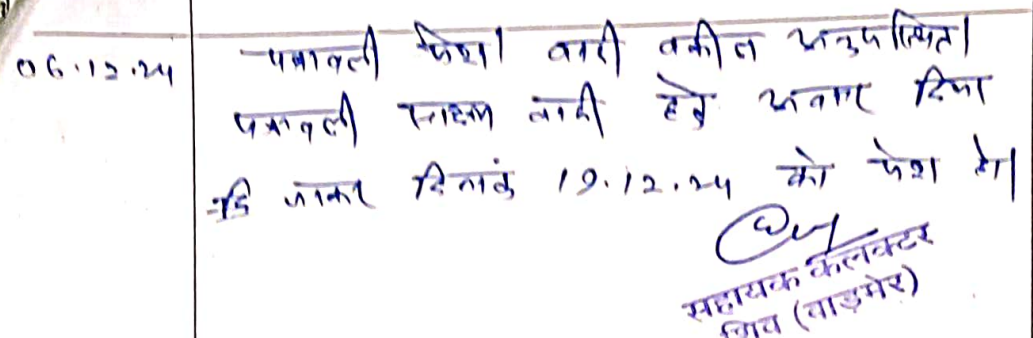 06.12.24 पत्रावली पेश। वादी वकील अनुपस्थित।
पत्रावली साक्ष्य वादी हेतु अवसर दिया
जाकर दिनांक 19.12.24 को पेश हो।
सहायक कलक्टर
शिव (बाड़मेर)